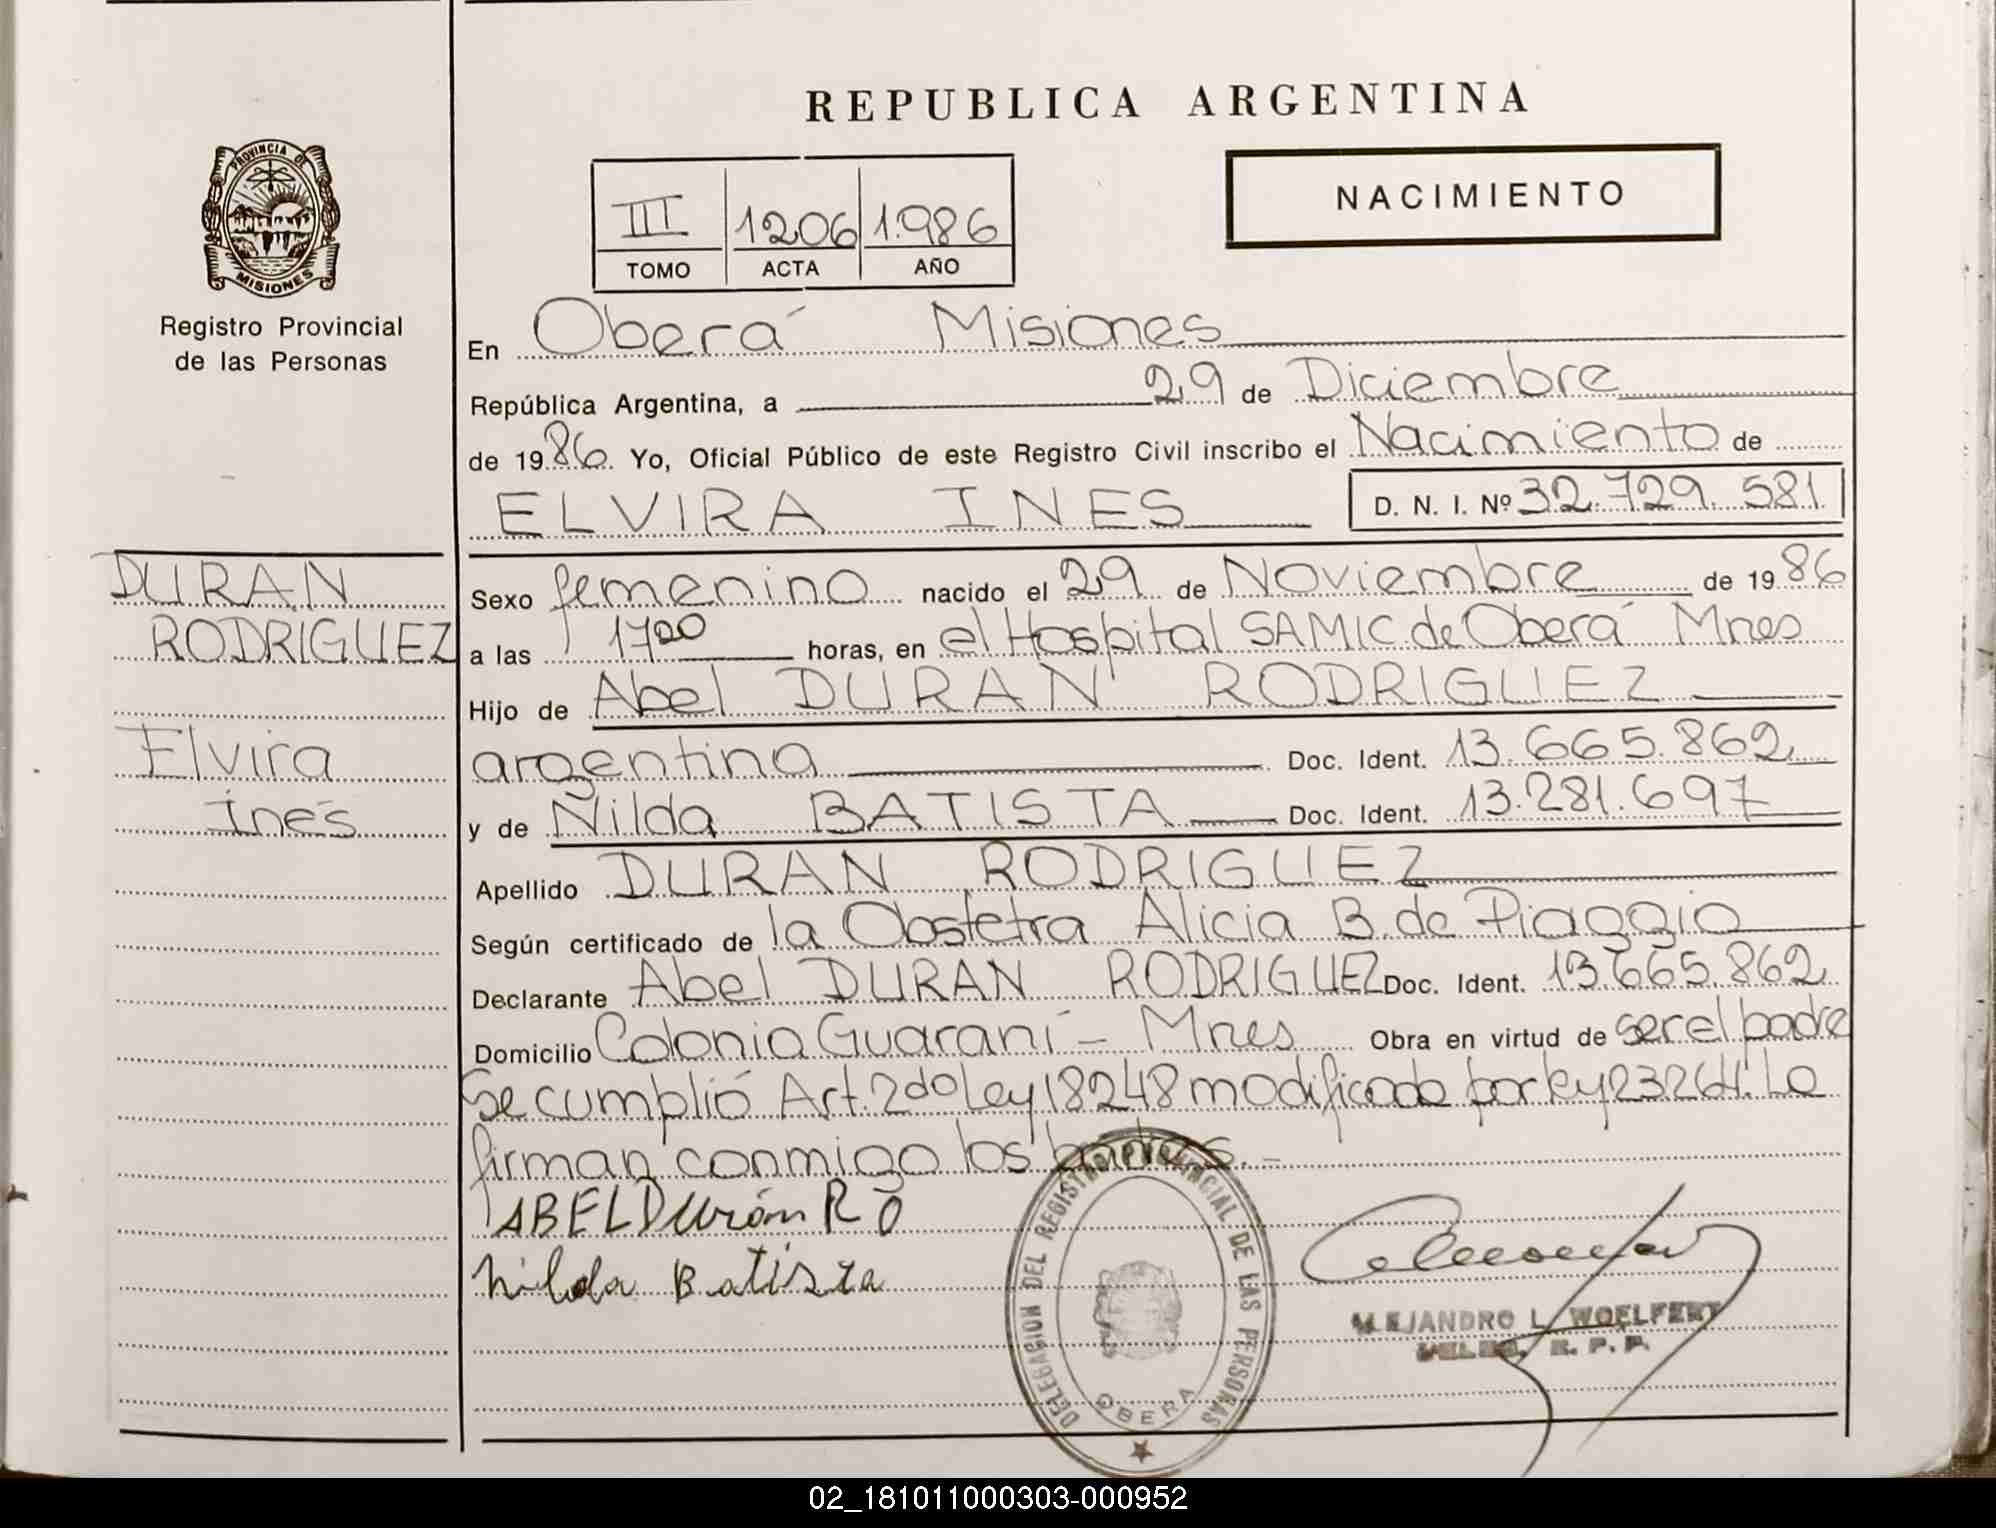 REPUBLICA ARGENTINA
PROVINCIA DE
MISIONES
Registro Provincial
de las Personas
NACIMIENTO
III 1206 1.986
TOMO ACTA AÑO
En Oberá Misiones
República Argentina, a 29 de Diciembre
de 1986. Yo, Oficial Público de este Registro Civil inscribo el Nacimiento de
ELVIRA INES D. N. I. Nº 32.729.581
DURAN
RODRIGUEZ
Elvira
Inés
Sexo femenino nacido el 29 de Noviembre de 1986
a las 1700 horas, en el Hospital SAMIC de Oberá Mnes
Hijo de Abel DURAN RODRIGUEZ
argentina Doc. Ident. 13.665.862
y de Nilda BATISTA Doc. Ident. 13.281.697
Apellido DURAN RODRIGUEZ
Según certificado de la Obstetra Alicia B. de Piaggio
Declarante Abel DURAN RODRIGUEZ Doc. Ident. 13.665.862
Domicilio Colonia Guaraní - Mnes Obra en virtud de ser el padre
Se cumplió Art. 2do Ley 18248 modificada por ley 23264. La
firman conmigo los padres.-
ABEL Durán R O
Nilda Batista
DELEGACION DEL REGISTRO PROVINCIAL DE LAS PERSONAS
OBERA
ALEJANDRO L. WOELFERT
R. P. P.
02_181011000303-000952